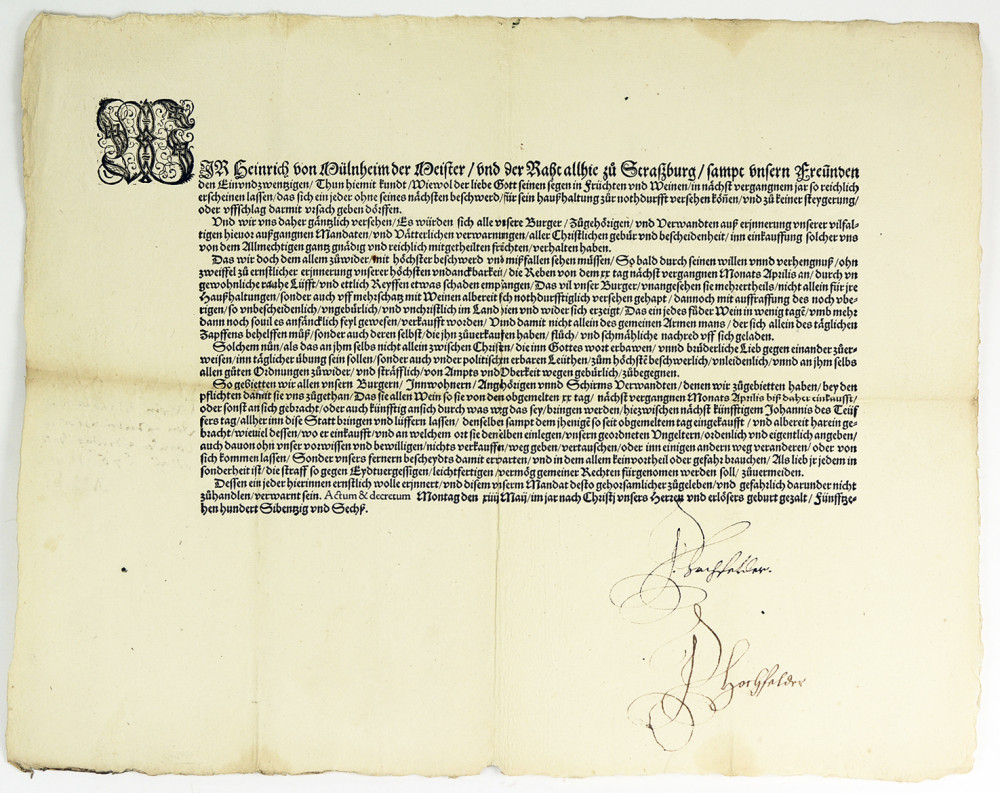 WIR Heinrich von Mülnheim der Meister / vnd der Raht allhie zů Straßburg / sampt vnsern Freünden
den Einvndzwentzigen / Thun hiemit kundt / Wiewol der liebe Gott seinen segen in Früchten vnd Weinen / in nächst vergangnem jar so reichlich
erscheinen lassen / das sich ein jeder ohne seines nächsten beschwerd / für sein haußhaltung zůr nothdurfft versehen können / vnd zů keiner steygerung /
oder vffschlag darmit vrsach geben dörffen.
Vnd wir vns daher gäntzlich versehen / Es würden sich alle vnsere Burger / Zůgehörigen / vnd Verwandten auß erjnnerung vnserer vilfäl-
tigen hieuor außgangnen Mandaten / vnd Vätterlichen verwarnungen / aller Christlichen gebür vnd bescheidenheit / inn einkauffung solcher vns
von dem Allmechtigen gantz gnädig vnd reichlich mitgetheilten früchten / verhalten haben.
Das wir doch dem allem zůwider / mit höchster beschwerd vnd mißfallen sehen müssen / So bald durch seinen willen vnnd verhengnuß / ohn
zweiffel zů ernstlicher erjnnerung vnserer höchsten vndanckbarkeit / die Reben von dem xx tag nächst vergangnen Monats Aprilis an / durch vn
gewohnliche rauhe Lüfft / vnd ettlich Reyffen etwas schaden empfangen / Das vil vnser Burger / vnangesehen sie mehrertheils / nicht allein für jre
Haußhaltungen / sonder auch vff mehrschatz mit Weinen albereit sich nothdurfftiglich versehen gehapt / dannoch mit auffraffung des noch vbe-
rigen / so vnbescheidenlich / vngebürlich / vnd vnchristlich im Land hien vnd wider sich erzeigt / Das ein jedes fůder Wein in wenig tagen / vmb mehr
dann noch souil es anfäncklich feyl gewesen / verkaufft worden / Vnd damit nicht allein des gemeinen Armen mans / der sich allein des täglichen
Zapffens behelffen můß / sonder auch deren selbst / die jhn zůuerkauffen haben / flůch / vnd schmähliche nachred vff sich geladen.
Solchem nůn / als das an jhm selbs nicht allein zwischen Christen / die inn Gottes wort erbawen / vnnd brůderliche Lieb gegen einander zůer-
weisen / inn täglicher übung sein sollen / sonder auch vnder politischen erbaren Leüthen / zům höchsten beschwerlich / vnleidenlich / vnnd an jhm selbs
allen gůten Ordnungen zůwider / vnd sträfflich / von Ampts vnd Oberkeit wegen gebürlich / zůbegegnen.
So gebietten wir allen vnsern Burgern / Innwohnern / Anghörigen vnnd Schirms Verwandten / denen wir zůgebietten haben / bey den
pflichten damit sie vns zůgethan / Das sie allen Wein so sie von den obgemelten xx tag / nächst vergangnen Monats Aprilis biß daher einkaufft /
oder sonst an sich gebracht / oder auch künfftig an sich durch was weg das sey / bringen werden / hiezwischen nächst künfftigem Johannis des Teüf
fers tag / allher inn dise Statt bringen vnd lüffern lassen / denselben sampt dem jhenigen so seit obgemeltem tag eingekaufft / vnd albereit harein ge-
bracht / wieuiel dessen / wo er einkaufft / vnd an welchem ort sie denselben einlegen / vnsern geordneten Vngeltern / ordenlich vnd eigentlich angeben /
auch dauon ohn vnser vorwissen vnd bewilligen / nichts verkauffen / weg geben / vertauschen / oder inn einigen andern weg veranderen / oder von
sich kommen lassen / Sonder vnsers fernern bescheydts damit erwarten / vnd in dem allem kein vortheil oder gefahr brauchen / Als lieb jr jedem in
sonderheit ist / die straff so gegen Eydtuergessigen / leichtfertigen / vermög gemeiner Rechten fürgenomen werden soll / zůuermeiden.
Dessen ein jeder hierinnen ernstlich wolle erjnnert / vnd disem vnserm Mandat desto gehorsamlicher zůgeleben / vnd gefährlich darunder nicht
zůhandlen / verwarnt sein. Actum & decretum Montag den xiiij Maij / im jar nach Christj vnsers Herren vnd erlösers geburt gezalt / Fünfftze-
hen hundert Sibentzig vnd Sechß.
Hochfelder.
Hochfelder